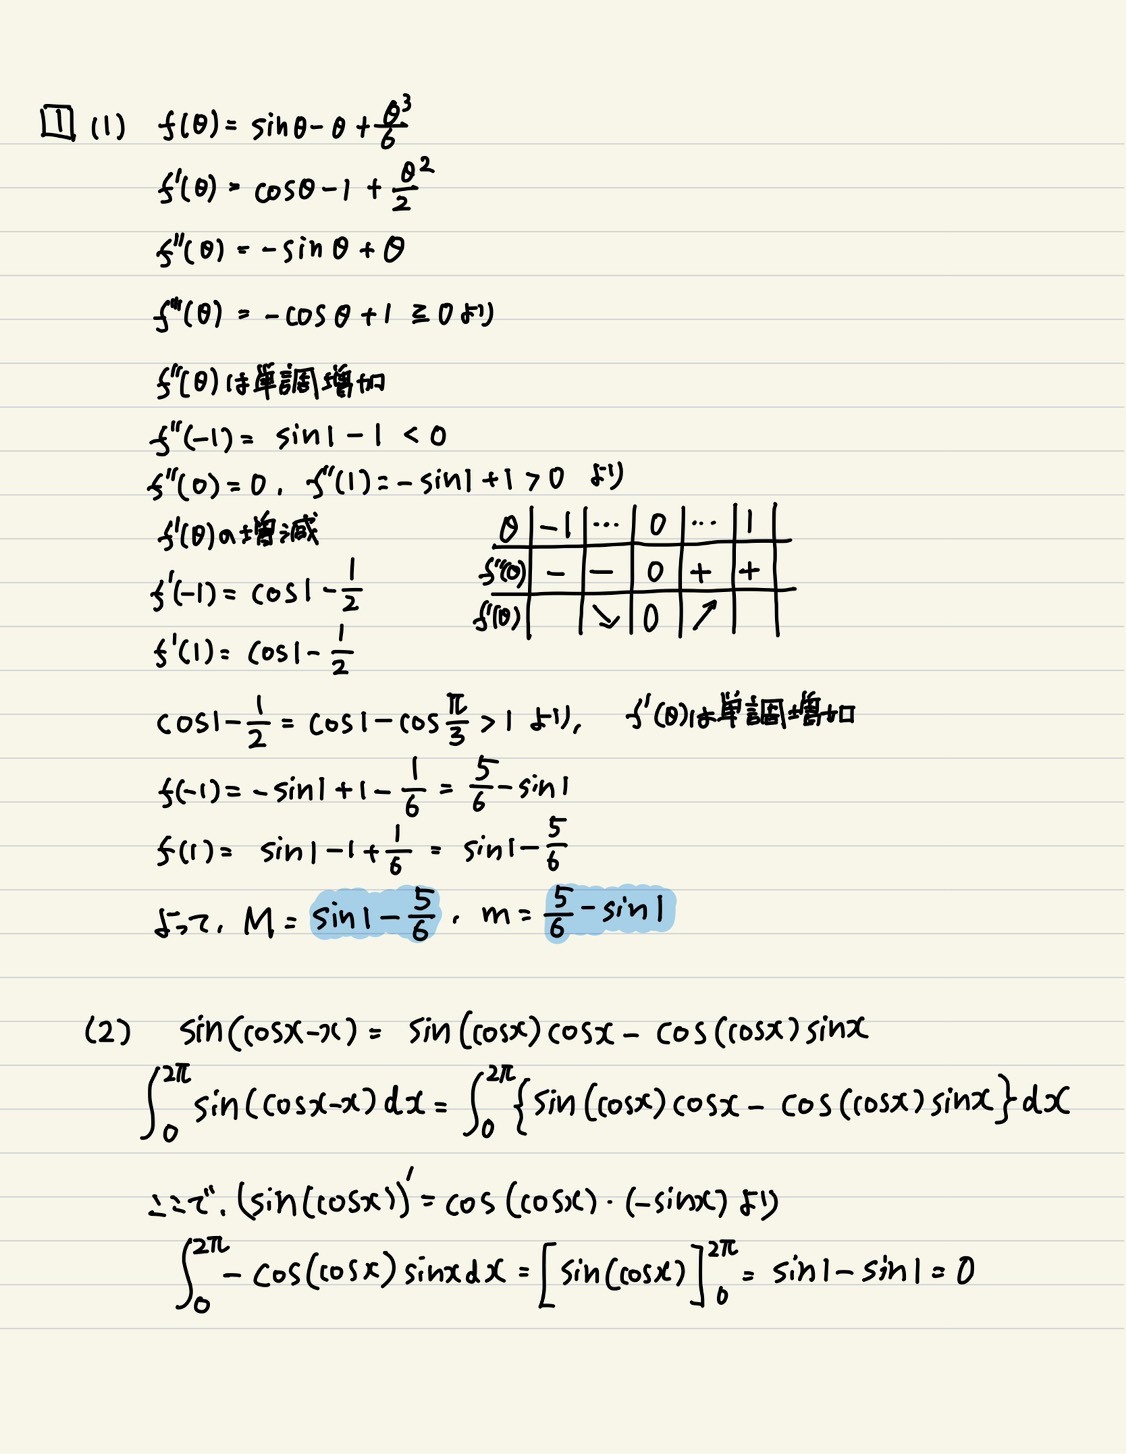 1 (1) f(θ) = sinθ - θ + θ³/6
f'(θ) = cosθ - 1 + θ²/2
f''(θ) = - sinθ + θ
f'''(θ) = - cosθ + 1 ≧ 0 より
f''(θ) は単調増加
f''(-1) = sin1 - 1 < 0
f''(0) = 0, f''(1) = - sin1 + 1 > 0 より
f'(θ)の増減
θ | -1 | … | 0 | … | 1
f''(θ) | - | - | 0 | + | +
f'(θ) | | ↘ | 0 | ↗ |
f'(-1) = cos1 - 1/2
f'(1) = cos1 - 1/2
cos1 - 1/2 = cos1 - cos π/3 > 1 より, f'(θ)は単調増加
f(-1) = - sin1 + 1 - 1/6 = 5/6 - sin1
f(1) = sin1 - 1 + 1/6 = sin1 - 5/6
よって, M = sin1 - 5/6, m = 5/6 - sin1
(2) sin(cosx-x) = sin(cosx)cosx - cos(cosx)sinx
∫₀^2π sin(cosx-x)dx = ∫₀^2π {sin(cosx)cosx - cos(cosx)sinx}dx
ここで, (sin(cosx))' = cos(cosx)・(-sinx) より
∫₀^2π - cos(cosx)sinxdx = [sin(cosx)]₀^2π = sin1 - sin1 = 0